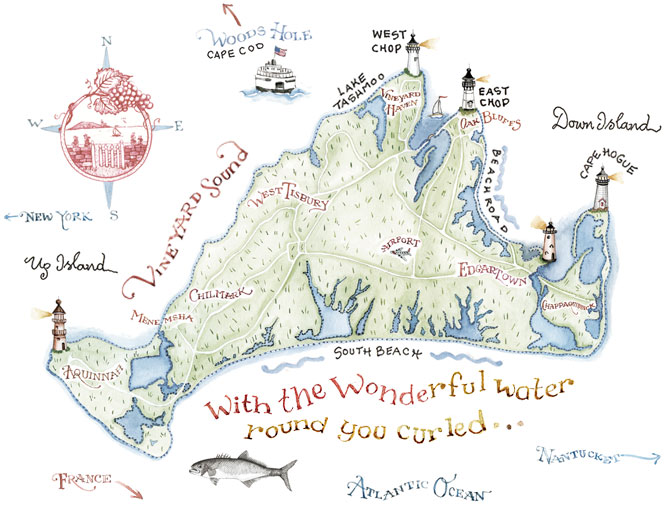 WOODS HOLE
CAPE COD
WEST
CHOP
N
LAKE
TASHMOO
VINEYARD
HAVEN
EAST
CHOP
OAK BLUFFS
Down Island
W
E
S
BEACH ROAD
CAPE HOGUE
VINEYARD SOUND
WEST TISBURY
NEW YORK
Up Island
AIRPORT
EDGARTOWN
CHILMARK
CHAPPAQUIDDICK
MENEMSHA
AQUINNAH
SOUTH BEACH
With the Wonderful water
round you curled...
FRANCE
ATLANTIC OCEAN
NANTUCKET